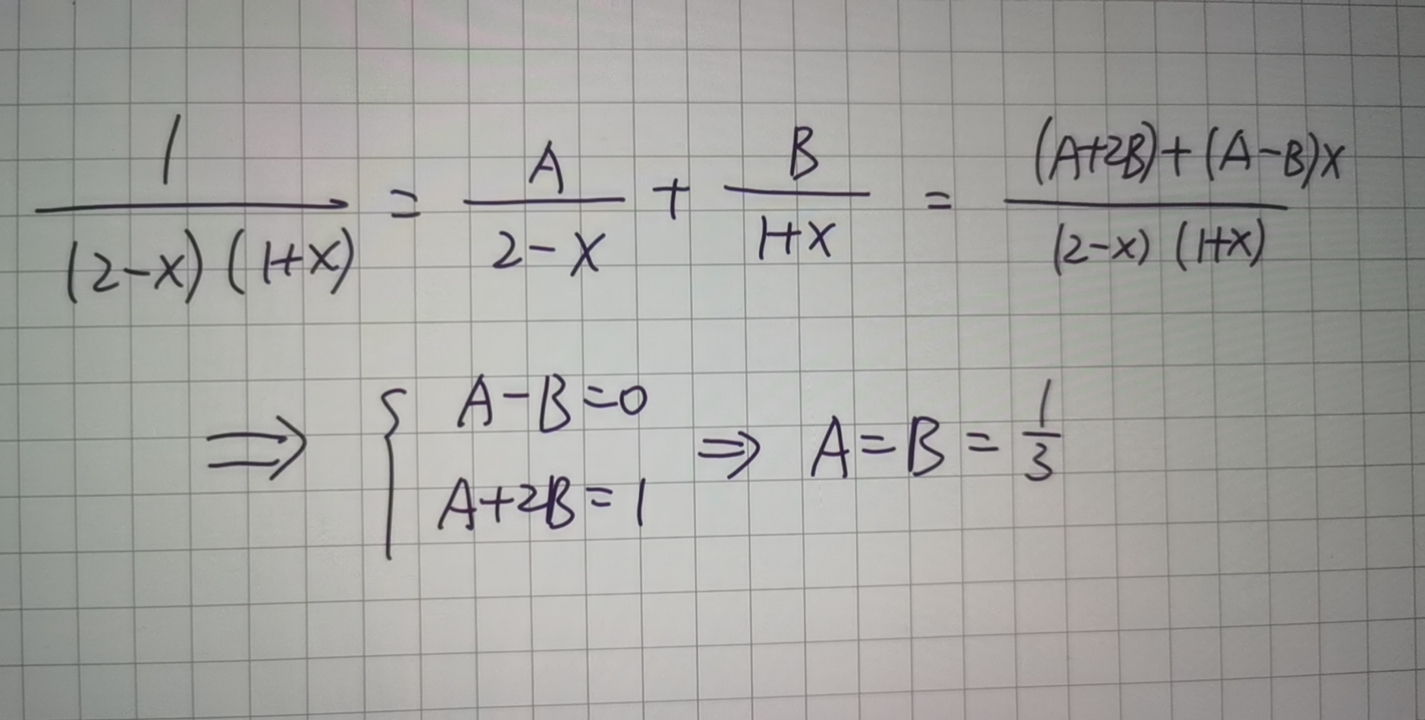 1/((2-x)(1+x)) = A/(2-x) + B/(1+x) = ((A+2B)+(A-B)x)/((2-x)(1+x))
⇒ { A-B=0
A+2B=1 ⇒ A=B=1/3